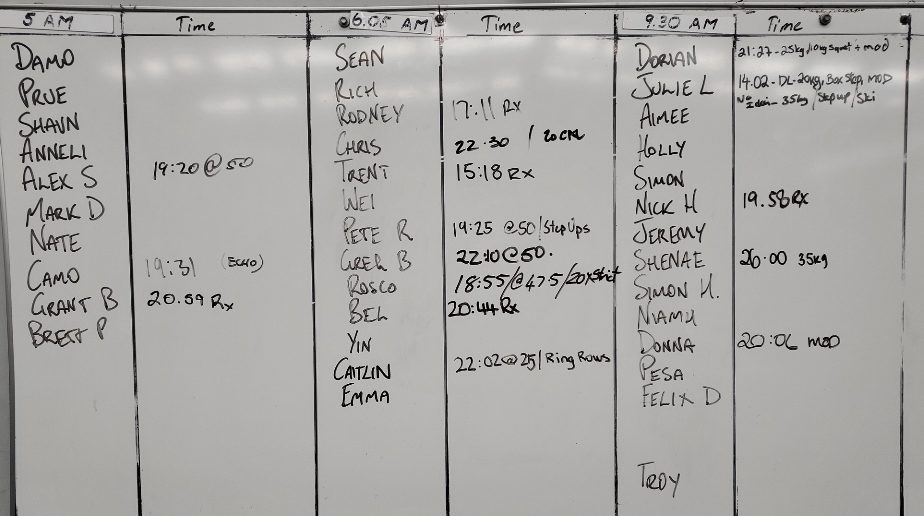 5 AM
Time
DAMO
PRUE
SHAUN
ANNELI
ALEX S 19:20 @ 50
MARK D
NATE
CAMO 19:31 (ECHO)
GRANT B 20.59 Rx
BRETT P
6.05 AM
Time
SEAN
RICH
RODNEY 17:11 Rx
CHRIS 22.30 / 20 CAL
TRENT 15:18 RX
WEI
PETE R 19:25 @50/Step Ups
GREG B 22:10@50.
ROSCO 18:55/@47.5/20xstrict
BEL 20:44 Rx
YIN
CAITLIN 22:02@25/Ring Rows
EMMA
9.30 AM
Time
DORIAN 21:27-25kg/10kg squat + MOD
JULIE L 14.02-DL-20kg, Box Step, MOD
AIMEE 35kg/Step up/Ski
HOLLY
SIMON
NICK H 19.58 RX
JEREMY
SHENAE 26:00 35kg
SIMON H.
NIAMH
DONNA 20:06 MOD
PESA
FELIX D
TROY